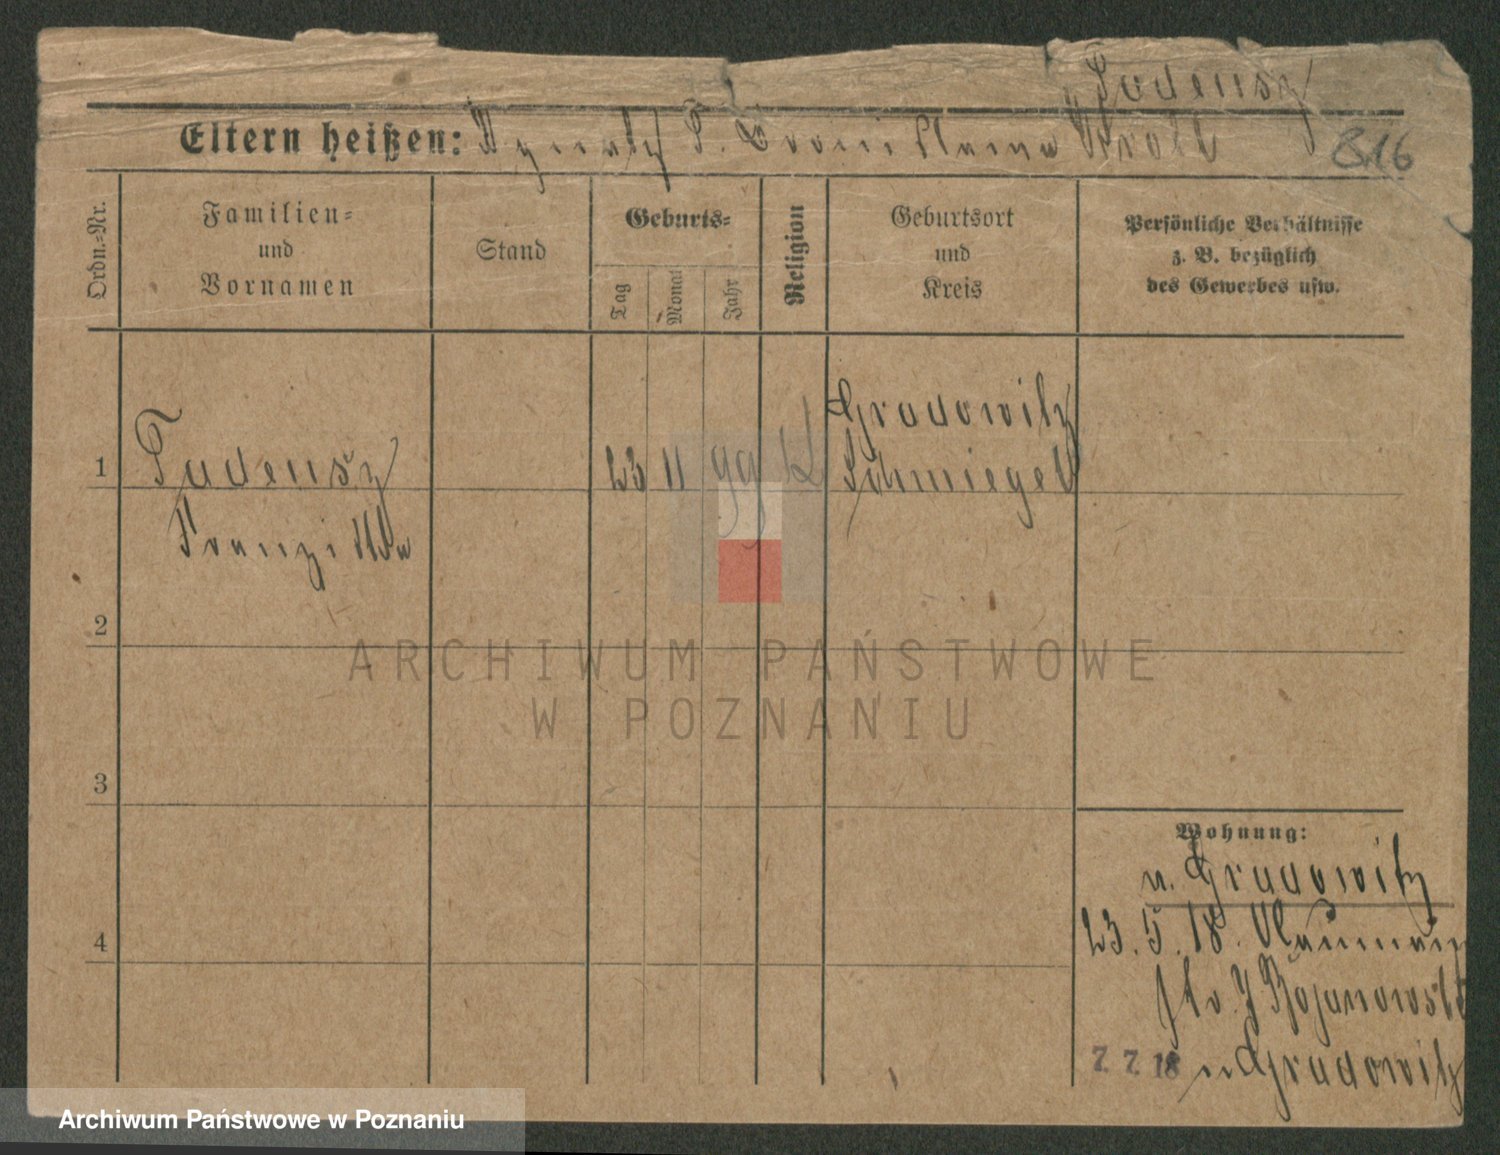 Tadeusz
Eltern heißen: Ignatz T. Bronislawa Kroll
816
Ordn.-Nr.
Familien- und Vornamen
Stand
Geburts-
Tag
Monat
Jahr
Religion
Geburtsort und Kreis
Persönliche Verhältnisse z. B. bezüglich des Gewerbes usw.
Gradowitz
1 Tadeusz 23 11 99 K Schmiegel
Franziska
2
3
4
Wohnung:
n. Gradowitz
23. 5. 18. Naumann
str. J Bojanowski
7. 7. 18 n Gradowitz
ARCHIWUM PAŃSTWOWE
W POZNANIU
Archiwum Państwowe w Poznaniu